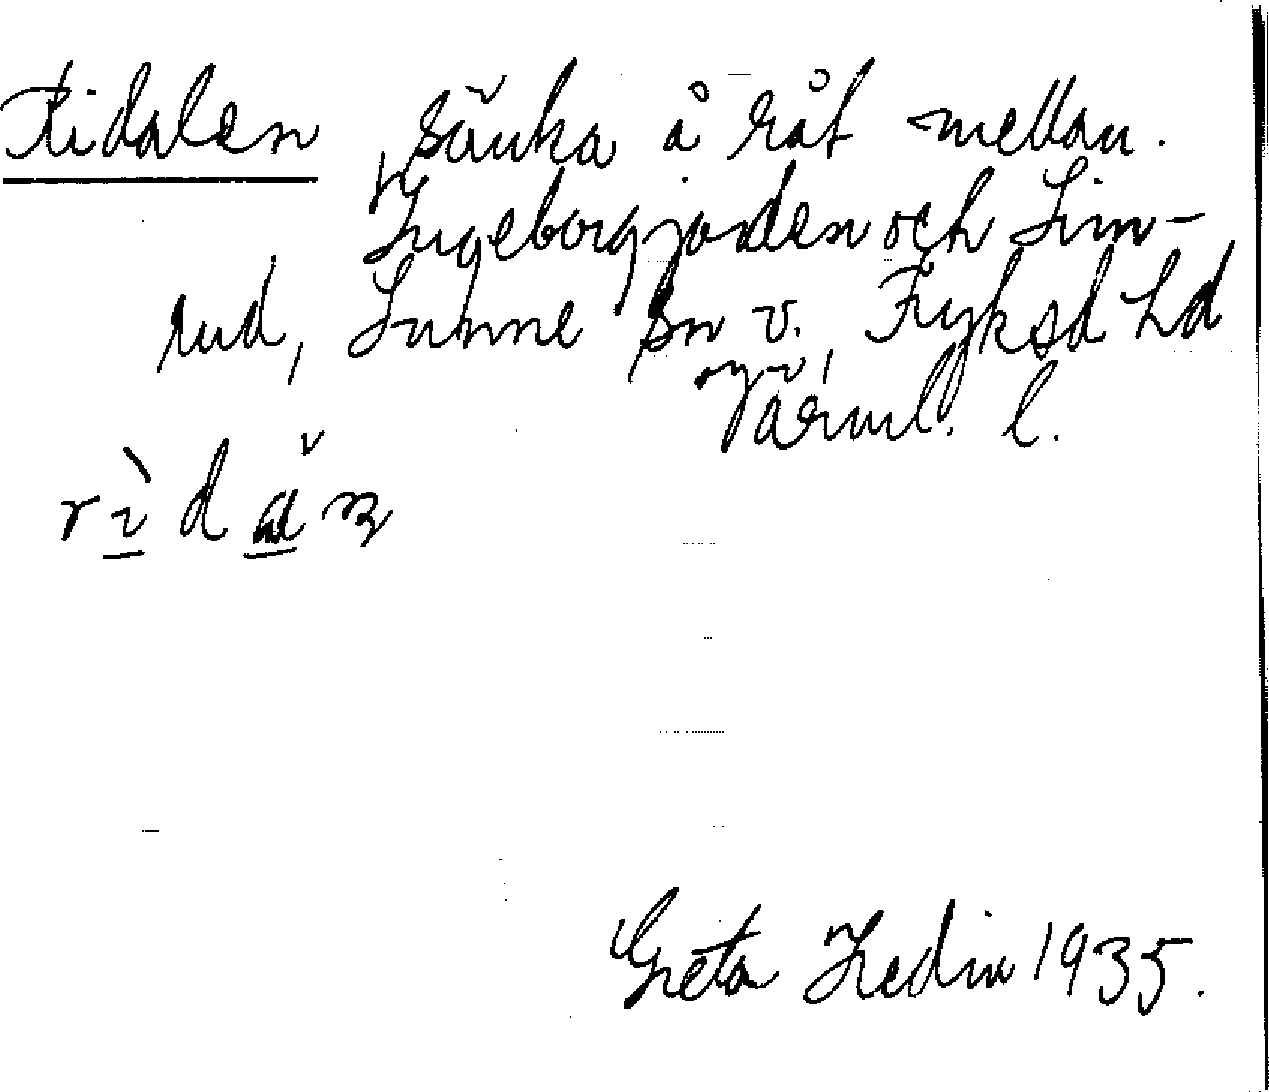 Ridalen, sänka å råt mellan
Ingeborgjorden och Lim-
rud, Sunne sn v. Fryksd hd
Värml. l.
rìdan
Greta Hedin 1935.